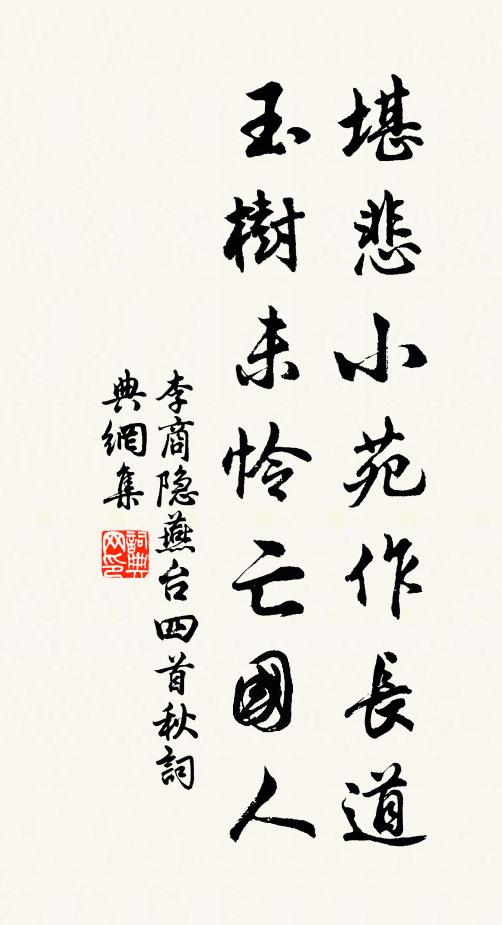 堪悲小苑作長道
玉樹未怜亡國人
李商隐燕台四首秋詞
典網集
詞典网印